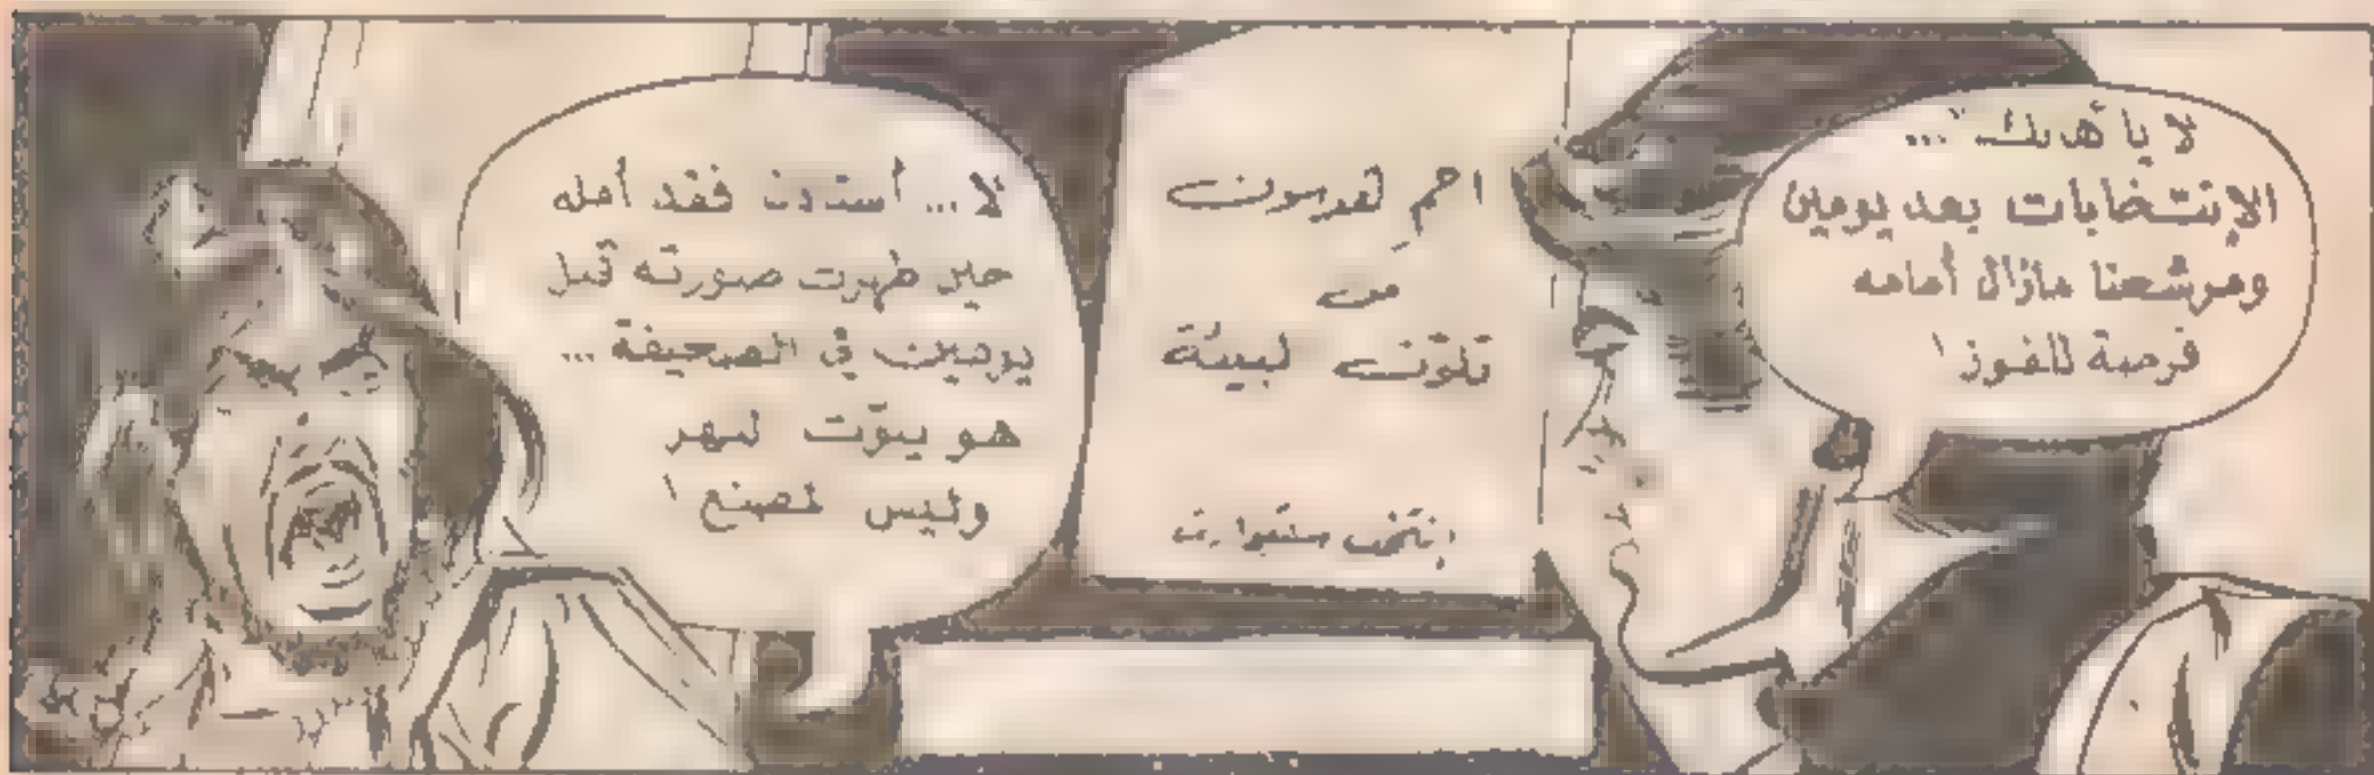 لا يا هدبك ...
الإنتخابات بعد يومين
ومرشحنا مازال أمامه
فرصة للفوز !
احم لعدسون
من
تلوّث لبيئة
إنتخب ستيوارت
لا ... أستاذ فقد أمله
حين ظهرت صورته قبل
يومين في الصحيفة ...
هو يلوّث لنهر
وليس لمصنع !